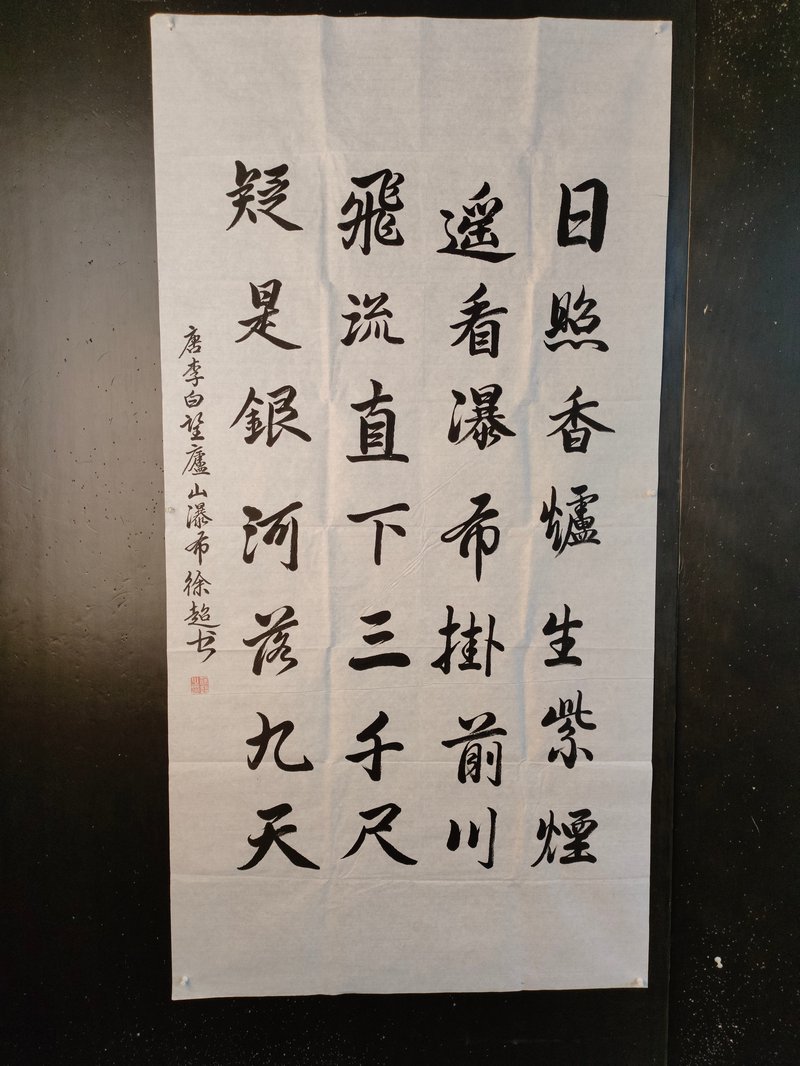 日照香爐生紫煙
遥看瀑布掛前川
飛流直下三千尺
疑是銀河落九天
唐李白望廬山瀑布徐超书